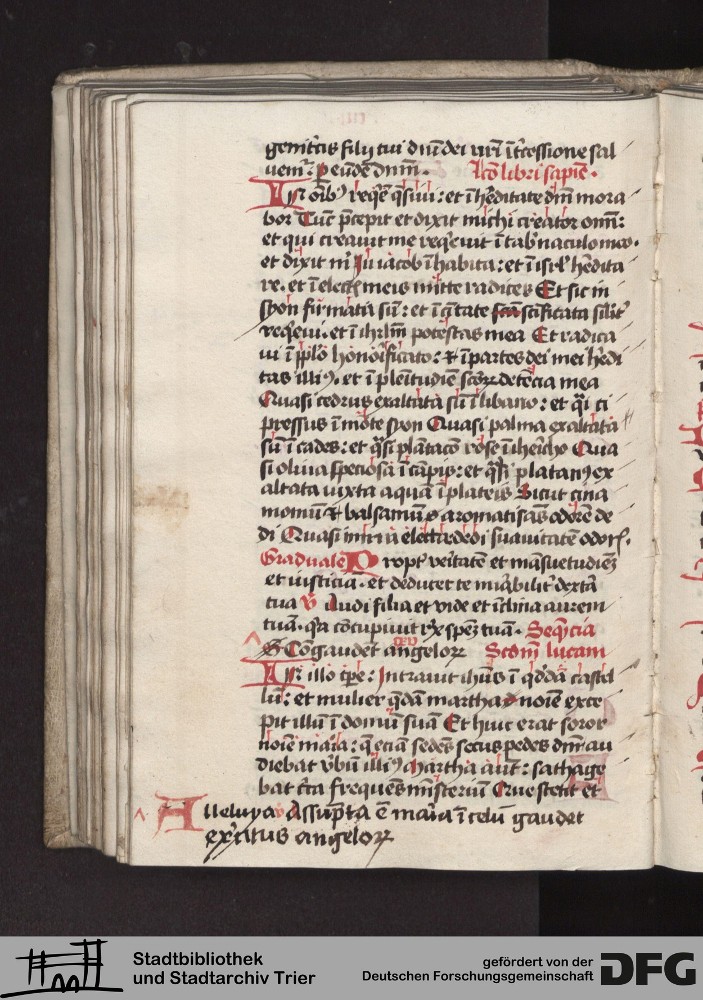 genit͛cis filij tui dn̄i dei nr̄i īt͛cessione sal
uem͛. p eūdē dnm̄. Lcō libri sapiē.
In oīb9 req͛e q̄siui: et ī h͛editate dn̄i mora
bor Tūc p̄cepit et dixit michi creator oīm:
et qui creauit me req͛euit ī tab͛naculo meo.
et dixit m͛ In iacob īhabita: et ī isrl͛ h͛edita
re. et ī elect͛ meis mitte radices Et sic in
syon firmata sū: et ī cītate sc̄ificata silit͛
req͛eui. et ī ihrlm̄ potestas mea Et radica
ui ī pplo honorificato: et ī partes dei mei h͛edi
tas illi9. et ī plenitudīe sc̄oꝝ detētia mea
Quasi cedrus exaltata sū ī libano: et q̄si ci
pressus ī mōte syon Quasi palma exaltata
sū ī cades: et q̄si plātacō rose ī h͛icho Qua
si oliua speciosa ī cāpis: et q̄si platan9 ex
altata iuxta aquā ī plateis Sicut cina
momū et balsamū aromatisās odorē de
di Quasi mirra electa dedi suauitatē odor͛.
Graduale Propt͛ veritatē et māsuetudinē
et iusticiā. et deducet te mirabilit͛ dext͛a
tua v̄ Audi filia et vide et īclina aurem
tuā. q͛a cōcupiuit rex spēz tuā. Seq̄ncia
Cōgaudent angeloꝝ Scdm̄ lucam
In illo tp̄e: Intrauit ihūs ī q̄ddā castel
lū: et mulier q̄dā martha noīe exce
pit illū ī domū suā Et huic erat soror
noīe maria: q̄ eciā sedēs secus pedes dn̄i au
diebat v͛bū illi9 Martha aūt: sathage
bat c͛ca frequēs mīsteriū Que stetit et
Alleluya v̄ Assūpta ē maria ī celū gaudet
exercitus angeloꝝ
Stadtbibliothek
und Stadtarchiv Trier
gefördert von der
Deutschen Forschungsgemeinschaft
DFG